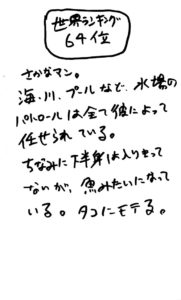 世界ランキング
64位
さかなマン。
海・川、プールなど、水場の
パトロールは全て彼によって
任せられている。
ちなみに下半身は入りきって
ないが、魚みたいになって
いる。タコにモテる。